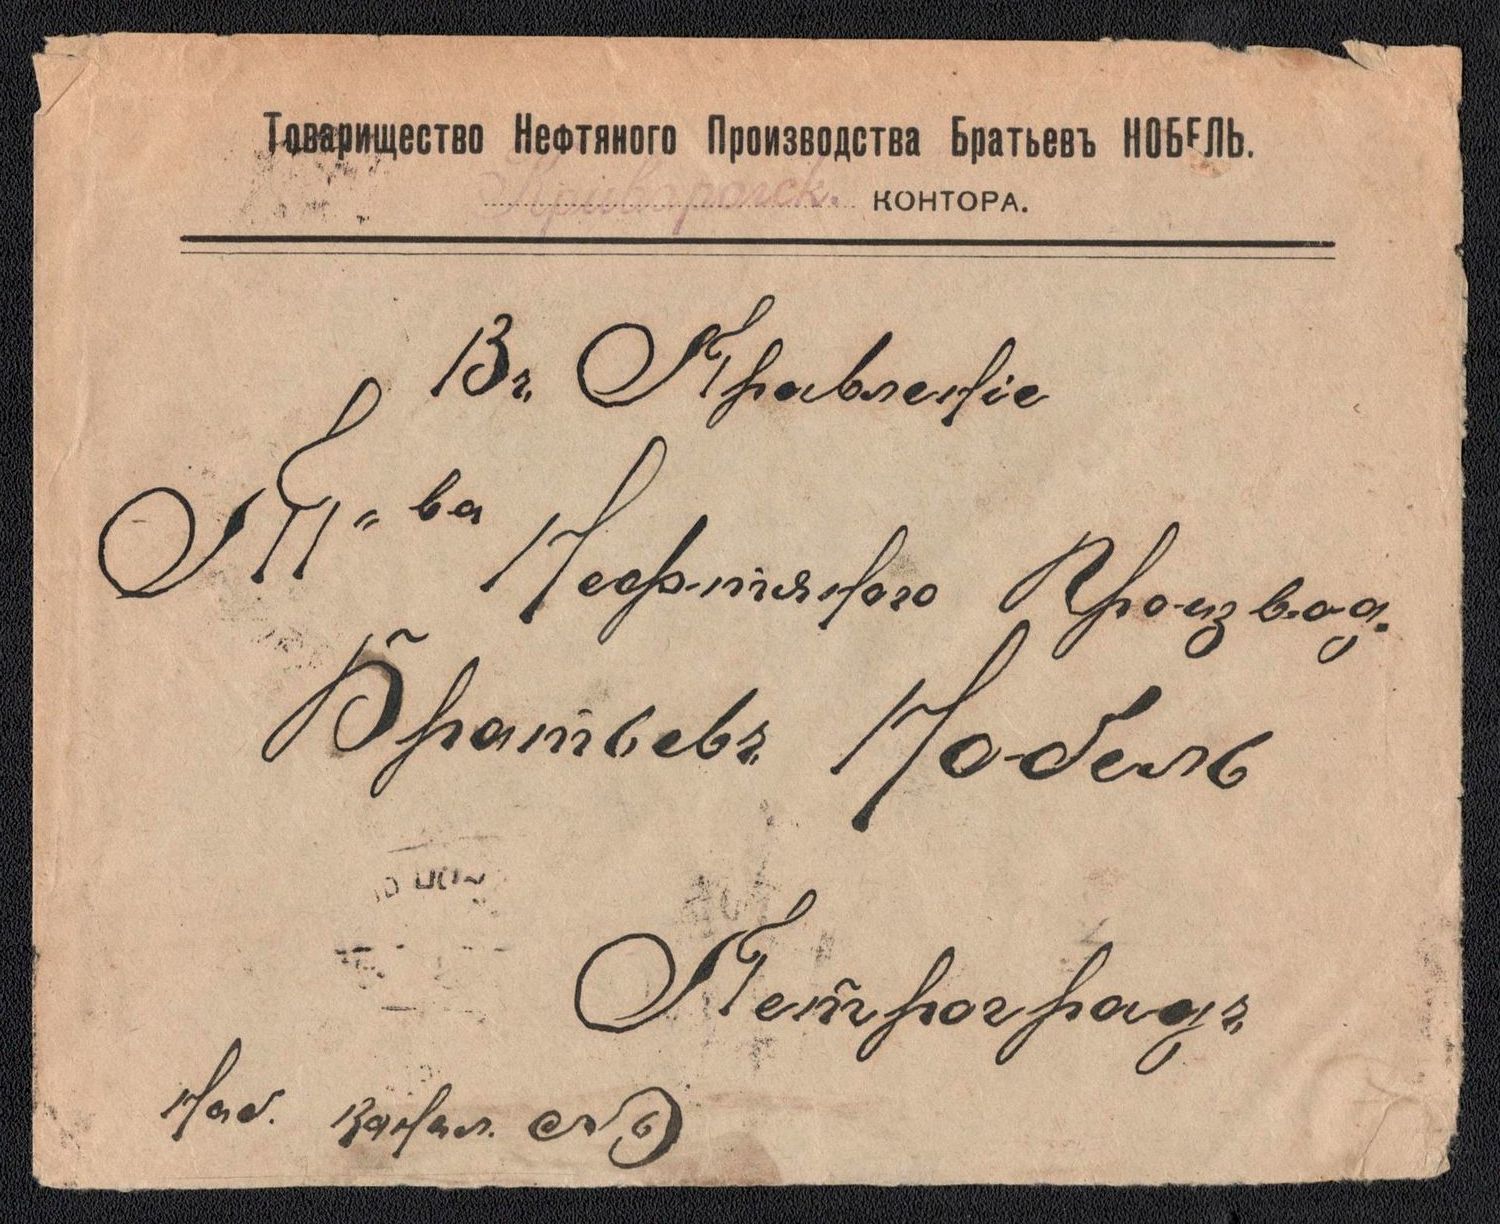 Товарищество Нефтяного Производства Братьевъ НОБЕЛЬ.
Криворогск. КОНТОРА.
Въ Правленіе
Т-ва Нефтяного Производ.
Братьевъ Нобель
Петроградъ
Наб. Канал.